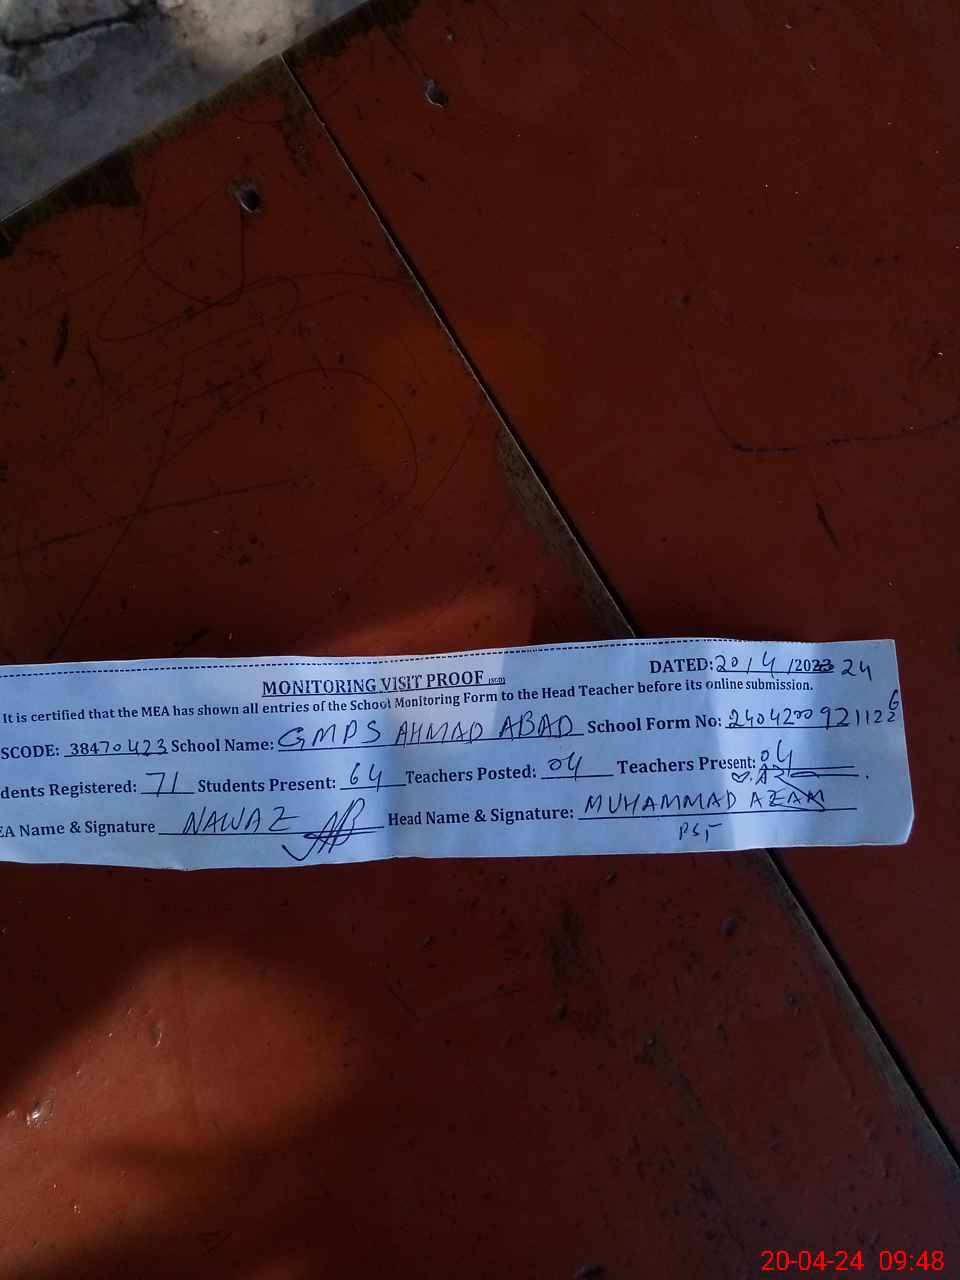 DATED: 20/4/2023 24
MONITORING VISIT PROOF
It is certified that the MEA has shown all entries of the School Monitoring Form to the Head Teacher before its online submission.
SCODE: 38470423 School Name: GMPS AHMAD ABAD School Form No: 24042009211226
dents Registered: 71 Students Present: 64 Teachers Posted: 04 Teachers Present: 04
EA Name & Signature NAWAZ Head Name & Signature: MUHAMMAD AZAM
PST
20-04-24 09:48